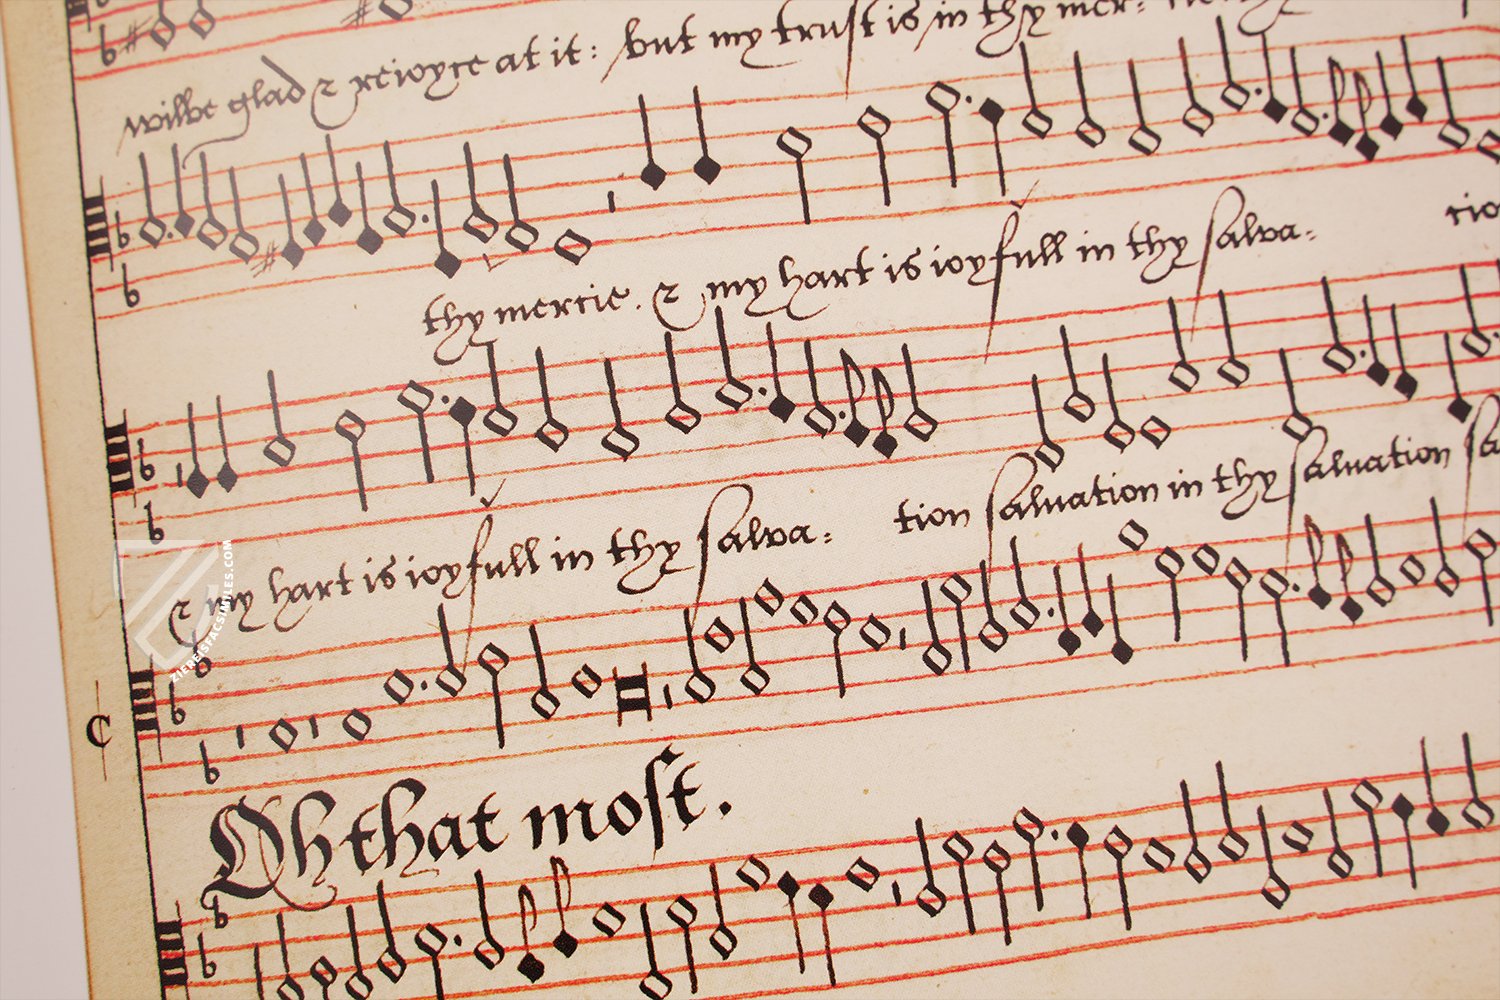 wilbe glad & reioyce at it: but my trust is in thy mer:
thy mercie. & my hart is ioyfull in thy salva: tio
& my hart is ioyfull in thy salva: tion saluation in thy saluation sa
Oh that most.
ZIEREISFACSIMILES.COM